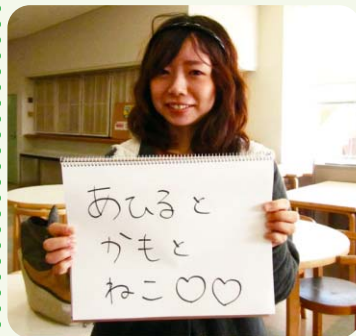 あひると
かもと
ねこ♡♡